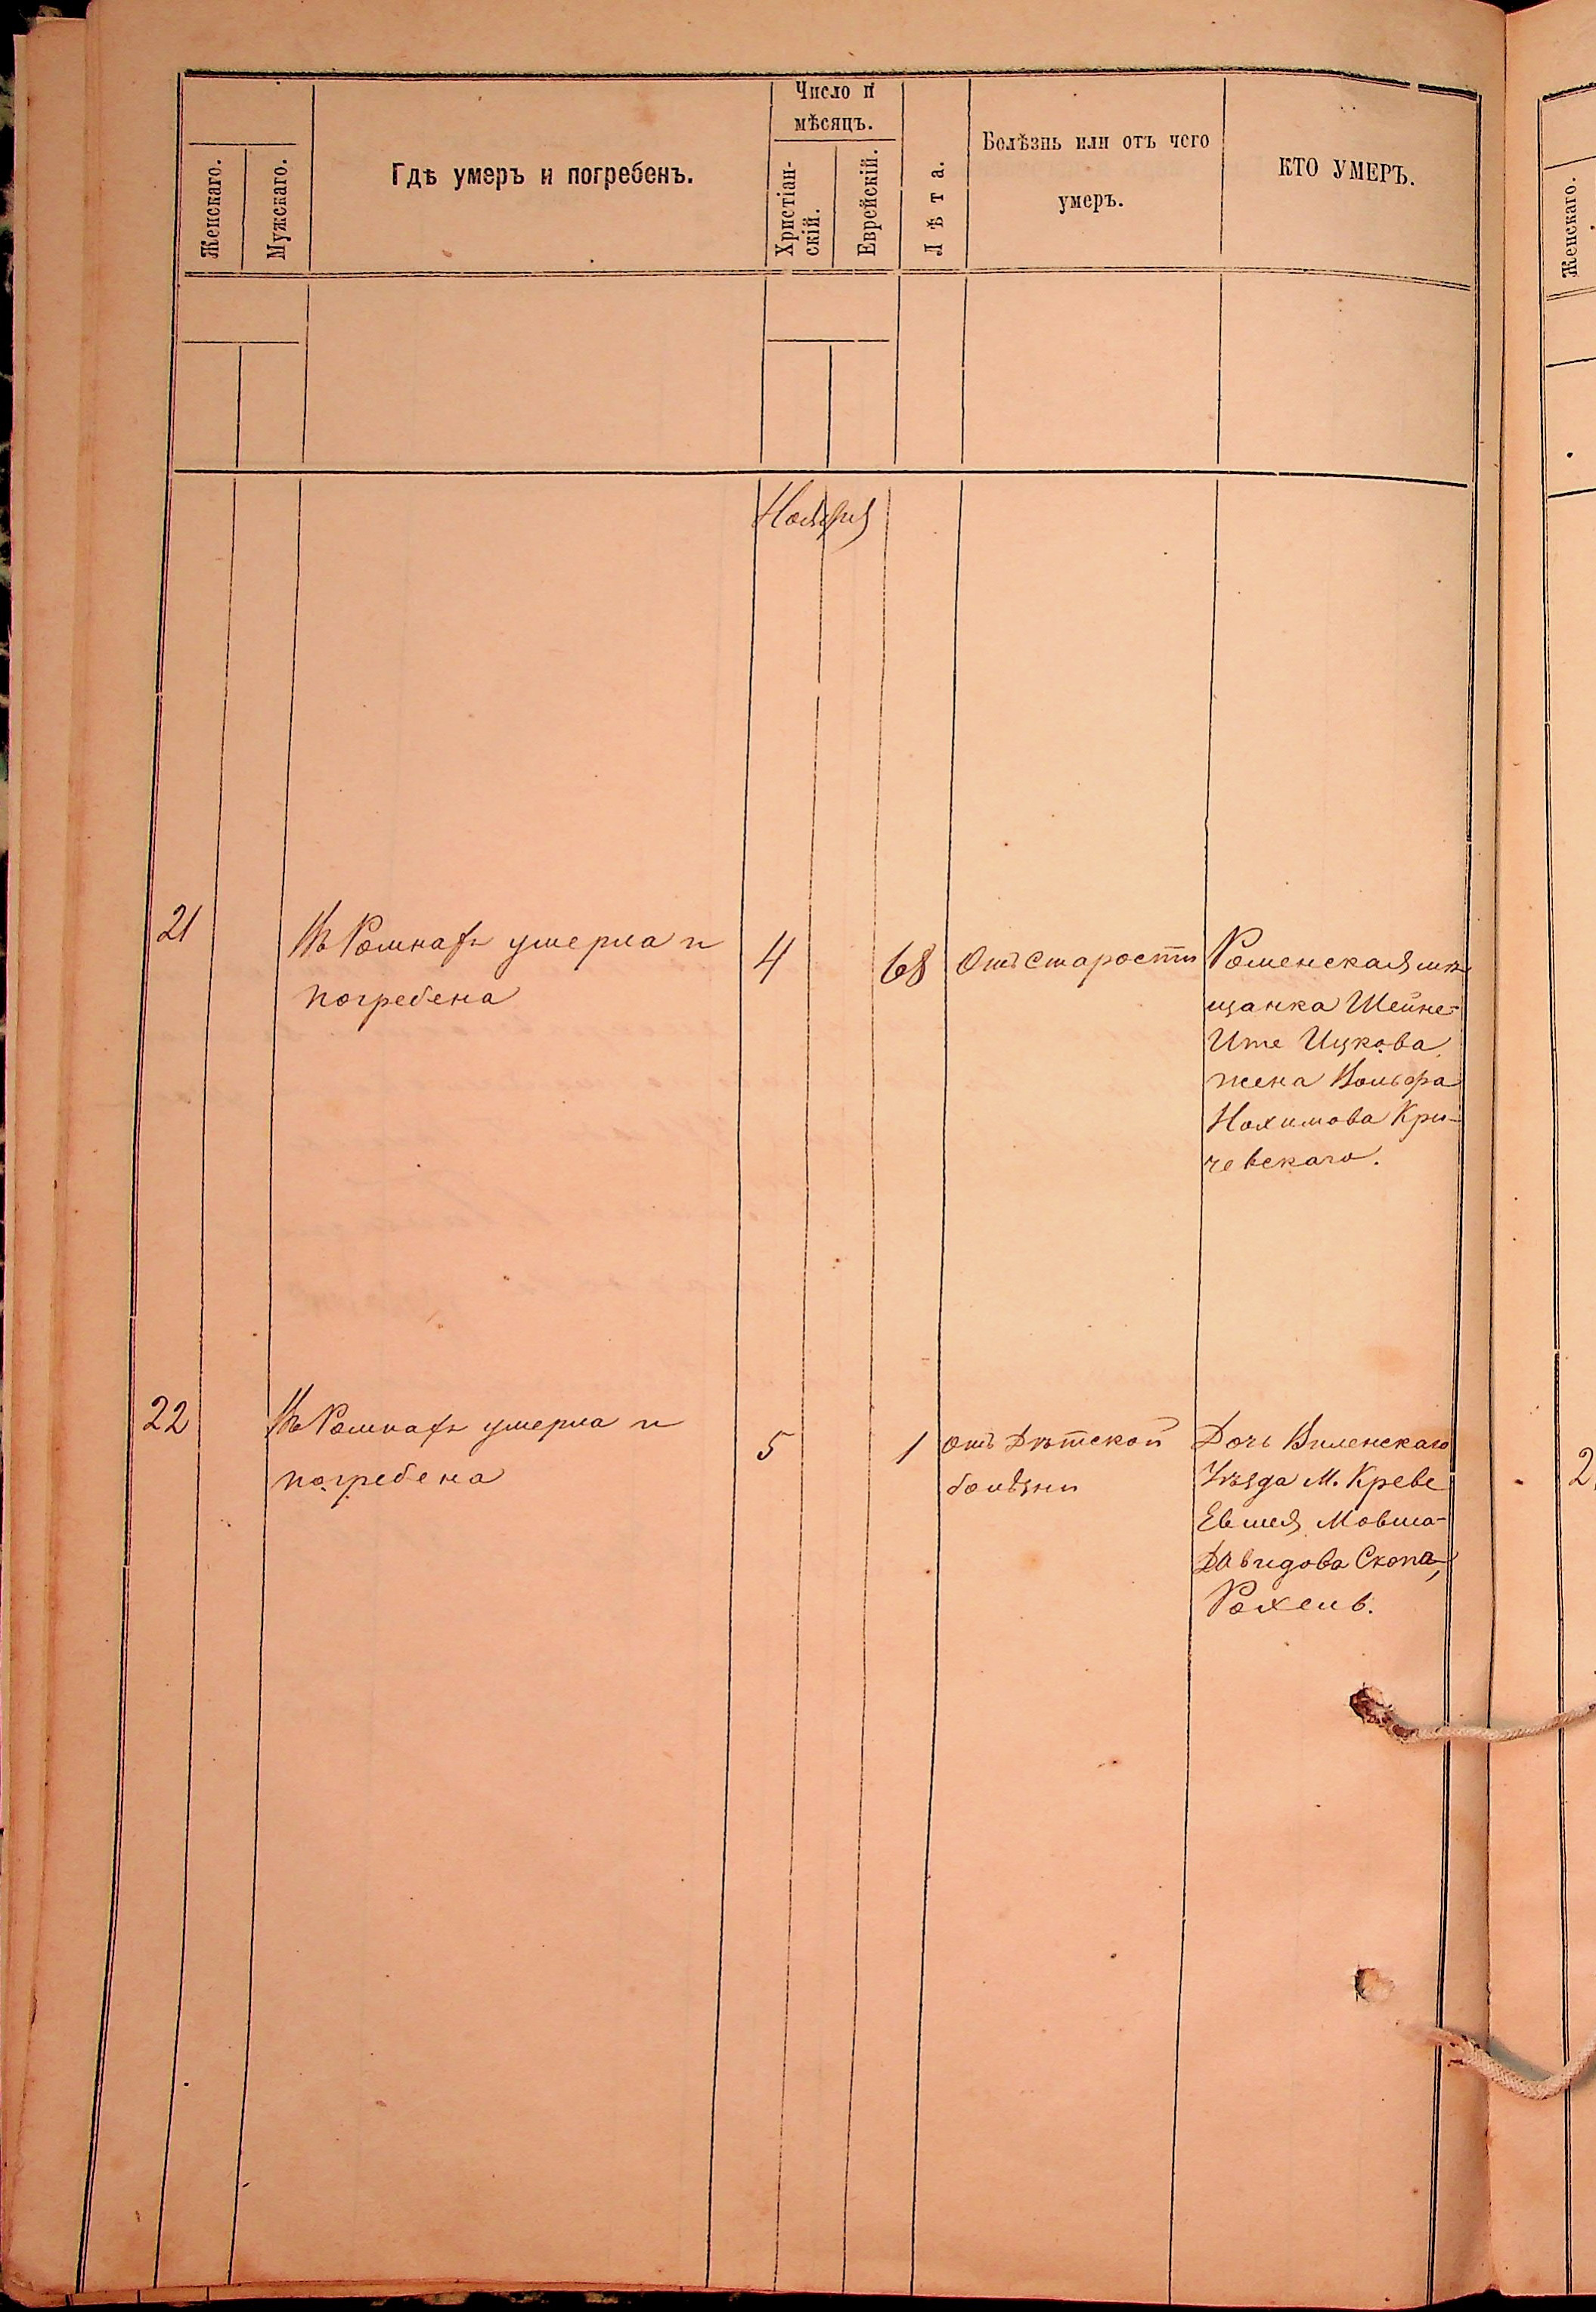 Женскаго.
Мужскаго.
Гдѣ умеръ и погребенъ.
Число и
мѣсяцъ.
Христіан-
скій.
Еврейскій.
Лѣта.
Болѣзнь или отъ чего
умеръ.
КТО УМЕРЪ.
Женскаго.
Ноября
21
Въ Ромнахъ умерла и
погребена
4
68
Отъ старости
Роменская мѣ-
щанка Шейне-
Ите Ицкова
жена Вольфа
Нохимова Кри-
чевскаго.
22
Въ Ромнахъ умерла и
погребена
5
1
отъ Дѣтской
болѣзни
Дочь Виленскаго
Уѣзда М. Креве
Евшея Мовша-
Давидова Скопа,
Рохель.
2